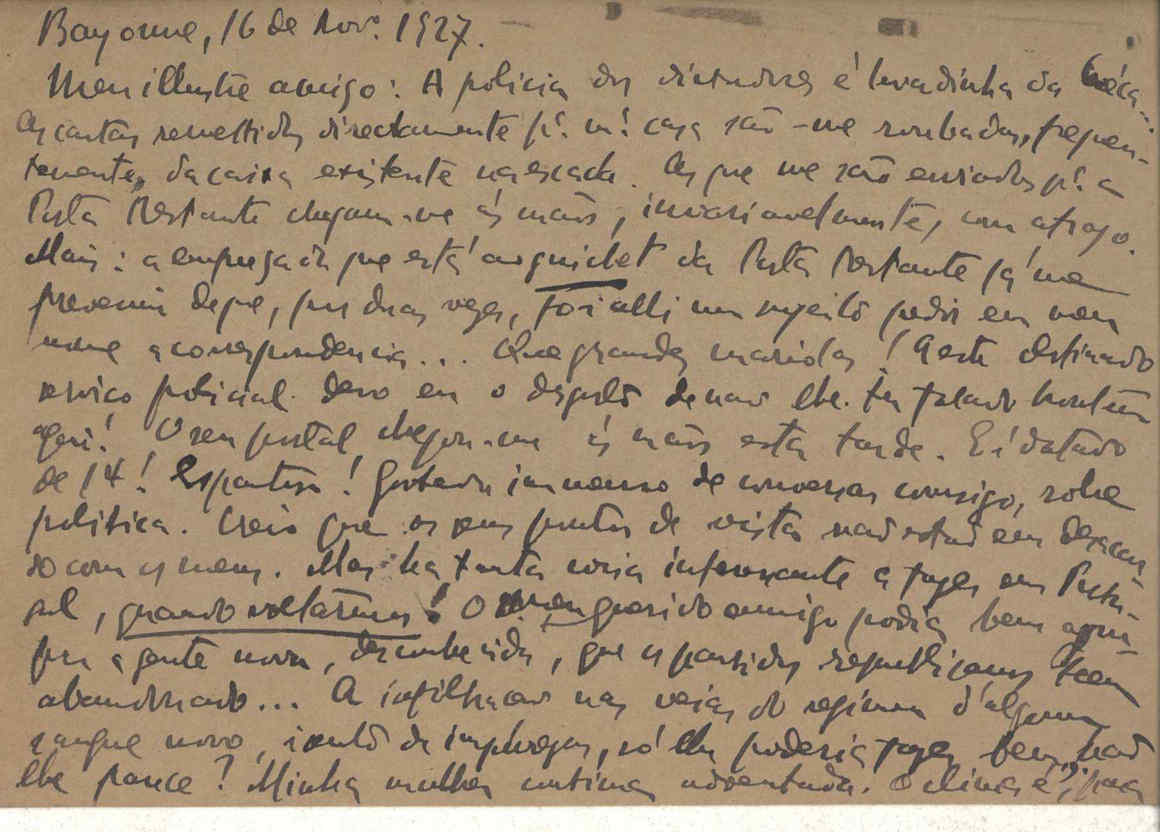 Bayonne, 16 de Nov.º 1927.
Meu illustre amigo: A policia dos dictadores é levadinha da bréca...
As cartas remettidas directamente p.ª m.ª casa são-me roubadas, frequen-
temente, da caixa existente na escada. As que me são enviadas p.ª a
Posta Restante chegam-me ás mãos, invariavelmente, com atrazo.
Mais: a empregada que está ao guichet da Posta Restante já me
preveniu de que, por duas vezes, foi alli um sujeito pedir em meu
nome a correspondencia... Que grandes mariolas! A este
serviço policial devo eu o desgosto de não lhe ter falado hontem
aqui! O seu postal chegou-me ás mãos esta tarde. E é datado
de 14! Gostava immenso de conversar comsigo, sobre
politica. Creio que os seus pontos de vista não estão em desacor-
do com os meus. Mas ha tanta coisa interessante a fazer em Portu-
gal, quando voltarmos! O meu querido amigo podia bem
a gente nova, desconhecida, que os partidos republicanos teem
abandonado... A infiltração nas veias do regimen d'algum
sangue novo, isento de impurezas, só lhe poderia fazer bem, não
lhe parece? Minha mulher continua adoentada. O clima é, para